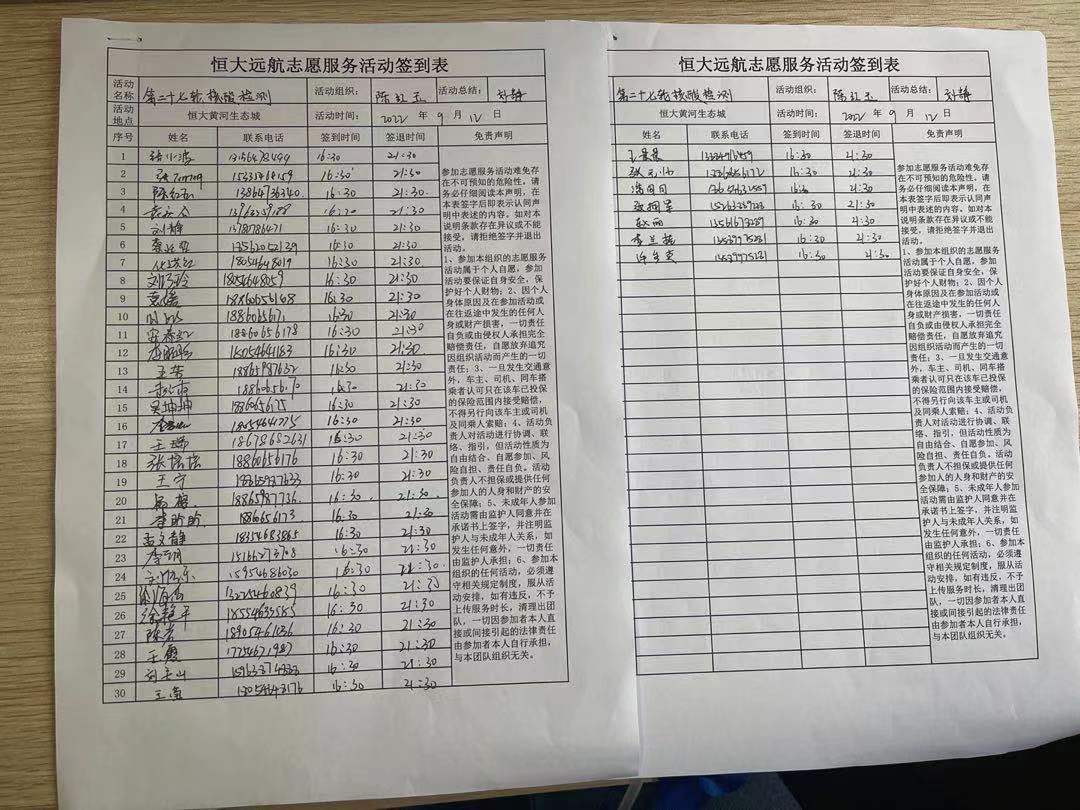 恒大远航志愿服务活动签到表
活动名称 第二十七轮核酸检测 活动组织： 陈红玉 活动总结： 刘静
活动地点 恒大黄河生态城 活动时间： 2022 年 9 月 12 日
序号 姓名 联系电话 签到时间 签退时间 免责声明
1 16:30 21:30
2 16:30 21:30
3 16:30 21:30
4 21:30
5 刘静 16:30 21:30
6 16:30 21:30
7 18054648019 16:30 21:30
8 16:30 21:30
9 16:30 21:30
10 16:30 21:30
11 18860656178 16:30 21:30
12 16:30 21:30
13 王芳 16:30 21:30
14 16:30 21:30
15 吴坤坤 16:30 21:30
16 16:30 21:30
17 王瑞 18678682631 16:30 21:30
18 18860656176 16:30 21:30
19 王宁 16:30 21:30
20 18865987736 16:30 21:30
21 李盼盼 16:30 21:30
22 孟文静 18354683865 16:30 21:30
23 15166273708 16:30 21:30
24 15954686030 16:30 21:30
25 13225460839 16:30 21:30
26 徐艳平 16:30 21:30
27 16:30 21:30
28 王霞 16:30 21:30
29 16:30 21:30
30 16:30 21:30
参加志愿服务活动难免存
在不可预知的危险性，请
务必仔细阅读本声明，在
本表签字后即表示认同声
明中表述的内容。如对本
说明条款存在异议或不能
接受，请拒绝签字并退出
活动。
1、参加本组织的志愿服务
活动属于个人自愿，参加
活动要保证自身安全，保
护好个人财物；2、因个人
身体原因及在参加活动或
在往返途中发生的任何人
身或财产损害，一切责任
自负或由侵权人承担完全
赔偿责任，自愿放弃追究
因组织活动而产生的一切
责任；3、一旦发生交通意
外，车主、司机、同车搭
乘者认可只在该车已投保
的保险范围内接受赔偿，
不得另行向该车主或司机
及同乘人索赔；4、活动负
责人对活动进行协调、联
络、指引，但活动性质为
自由结合、自愿参加、风
险自担、责任自负。活动
负责人不担保或提供任何
参加人的人身和财产的安
全保障；5、未成年人参加
活动需由监护人同意并在
承诺书上签字，并注明监
护人与未成年人关系，如
发生任何意外，一切责任
由监护人承担；6、参加本
组织的任何活动，必须遵
守相关规定制度，服从活
动安排，如有违反，不予
上传服务时长，清理出团
队，一切因参加者本人直
接或间接引起的法律责任
由参加者本人自行承担，
与本团队组织无关。
恒大远航志愿服务活动签到表
第二十七轮核酸检测 活动组织： 陈红玉 活动总结： 刘静
恒大黄河生态城 活动时间： 2022 年 9 月 12 日
姓名 联系电话 签到时间 签退时间 免责声明
16:30 21:30
16:30 21:30
16:30 21:30
16:30 21:30
赵丽 16:30 21:30
16:30 21:30
16:30 21:30
参加志愿服务活动难免存
在不可预知的危险性，请
务必仔细阅读本声明，在
本表签字后即表示认同声
明中表述的内容。如对本
说明条款存在异议或不能
接受，请拒绝签字并退出
活动。
1、参加本组织的志愿服务
活动属于个人自愿，参加
活动要保证自身安全，保
护好个人财物；2、因个人
身体原因及在参加活动或
在往返途中发生的任何人
身或财产损害，一切责任
自负或由侵权人承担完全
赔偿责任，自愿放弃追究
因组织活动而产生的一切
责任；3、一旦发生交通意
外，车主、司机、同车搭
乘者认可只在该车已投保
的保险范围内接受赔偿，
不得另行向该车主或司机
及同乘人索赔；4、活动负
责人对活动进行协调、联
络、指引，但活动性质为
自由结合、自愿参加、风
险自担、责任自负。活动
负责人不担保或提供任何
参加人的人身和财产的安
全保障；5、未成年人参加
活动需由监护人同意并在
承诺书上签字，并注明监
护人与未成年人关系，如
发生任何意外，一切责任
由监护人承担；6、参加本
组织的任何活动，必须遵
守相关规定制度，服从活
动安排，如有违反，不予
上传服务时长，清理出团
队，一切因参加者本人直
接或间接引起的法律责任
由参加者本人自行承担，
与本团队组织无关。